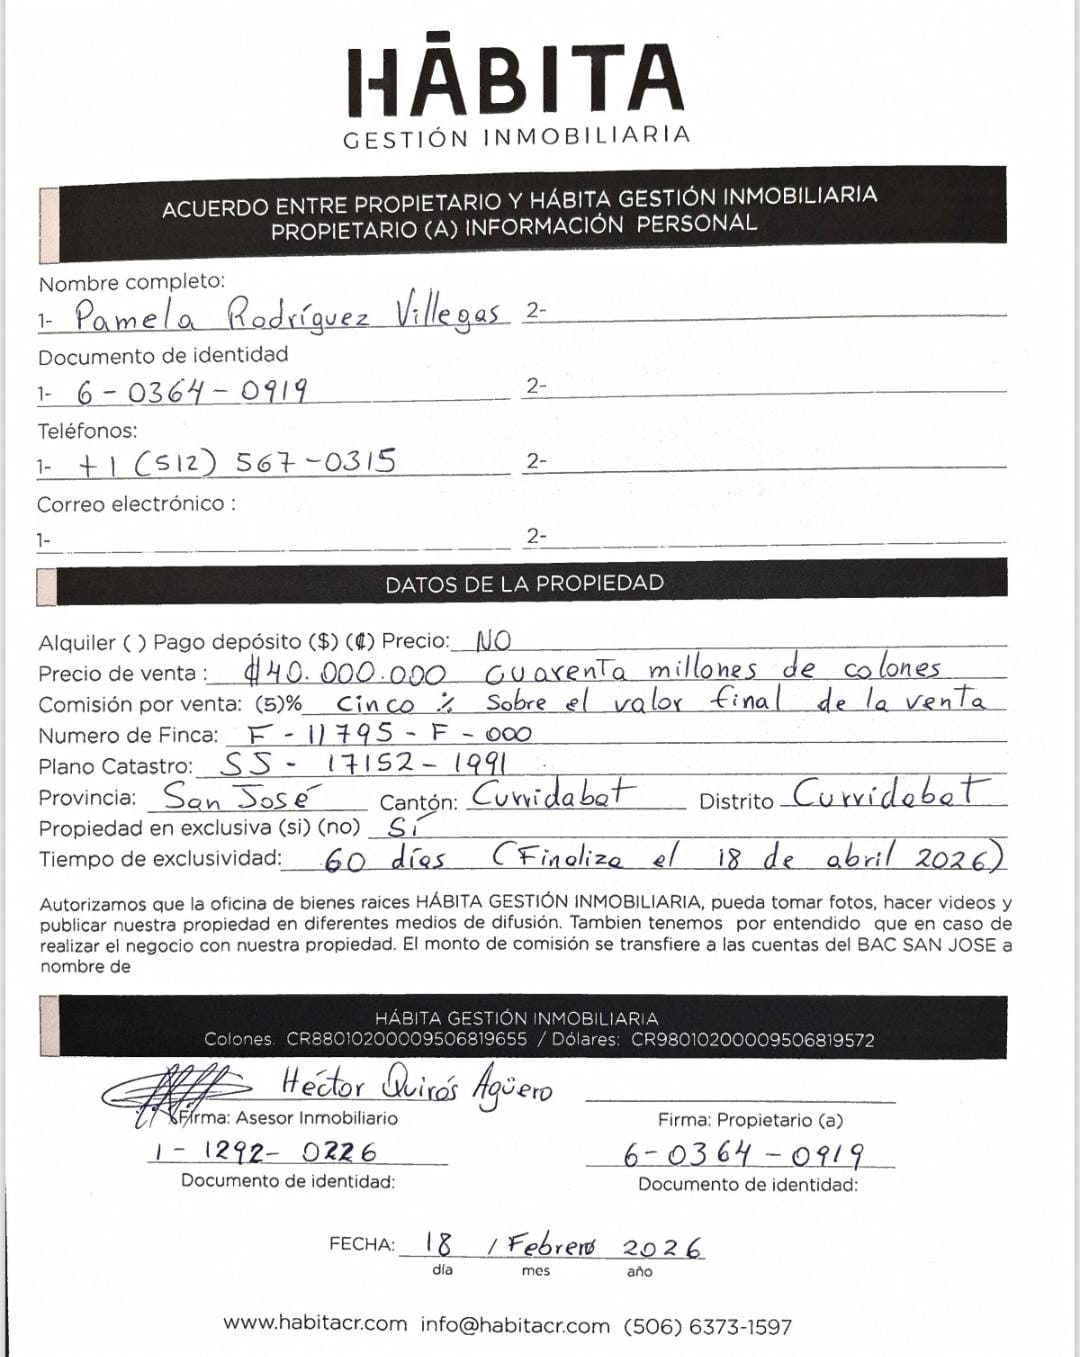 HĀBITA
GESTIÓN INMOBILIARIA
ACUERDO ENTRE PROPIETARIO Y HÁBITA GESTIÓN INMOBILIARIA
PROPIETARIO (A) INFORMACIÓN PERSONAL
Nombre completo:
1- Pamela Rodríguez Villegas 2-
Documento de identidad
1- 6-0364-0919 2-
Teléfonos:
1- +1 (512) 567-0315 2-
Correo electrónico :
1- 2-
DATOS DE LA PROPIEDAD
Alquiler ( ) Pago depósito ($) (₡) Precio: NO
Precio de venta : ₡40.000.000 cuarenta millones de colones
Comisión por venta: (5)% Cinco % Sobre el valor final de la venta
Numero de Finca: F-11795-F-000
Plano Catastro: SJ-17152-1991
Provincia: San José Cantón: Curridabat Distrito Curridabat
Propiedad en exclusiva (si) (no) Sí
Tiempo de exclusividad: 60 días (Finaliza el 18 de abril 2026)
Autorizamos que la oficina de bienes raices HÁBITA GESTIÓN INMOBILIARIA, pueda tomar fotos, hacer videos y
publicar nuestra propiedad en diferentes medios de difusión. Tambien tenemos por entendido que en caso de
realizar el negocio con nuestra propiedad. El monto de comisión se transfiere a las cuentas del BAC SAN JOSE a
nombre de
HÁBITA GESTIÓN INMOBILIARIA
Colones. CR88010200009506819655 / Dólares: CR98010200009506819572
Héctor Quirós Agüero
Firma: Asesor Inmobiliario Firma: Propietario (a)
1-1292-0226 6-0364-0919
Documento de identidad: Documento de identidad:
FECHA: 18 / Febrero 2026
día mes año
www.habitacr.com info@habitacr.com (506) 6373-1597